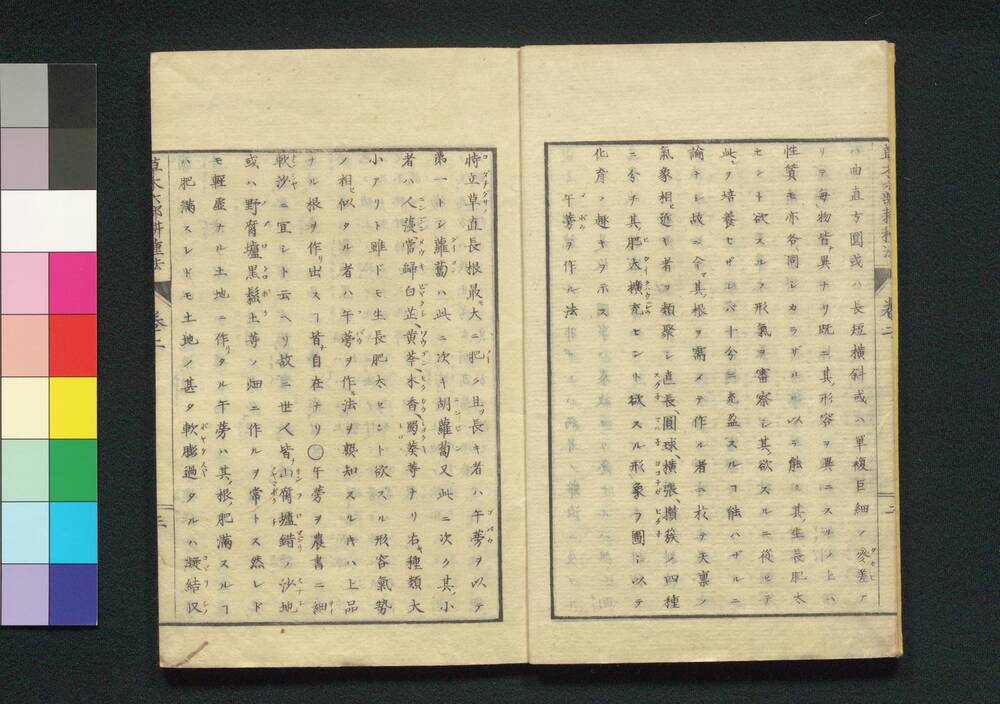 ハ曲直方圓或ハ長短横斜或ハ單複巨細ノ參差ア
リテ毎物皆異ナリ既ニ其形容ヲ異ニスルノ上ハ
性質モ亦各同シカラザルヲ以テ能ク其生長肥大
セント欲スルノ形氣ヲ審察シ其欲スルニ從ヒテ
此ヲ培養セザレバ十分ニ充盈スルヿ能ハザルニ
論ナシ故ニ今其根ヲ需メテ作ル者ニ於テ天稟ノ
氣象相近キ者ヲ類聚シ直長、圓球、横張、攅簇ノ四種
ニ分チ其肥大擴充セント欲スル形象ヲ圖シ以テ
化育ノ趣キヲ示ス
午蒡ヲ作ル法
特立草直長根最大ニ肥ク且長キ者ハ午蒡ヲ以テ
第一トシ蘿蔔ハ此ニ次キ胡蘿蔔又此ニ次ク其小
者ハ人葠當歸白芷、黄芩、木香、蜀葵等ナリ右種類大
小アリト雖ドモ生長肥大セント欲スル形容氣勢
ノ相似タル者ハ午蒡ヲ作ル法ヲ熟知スルキハ上品
ナル根ヲ作リ出スヿ皆自在ナリ〇午蒡ヲ農書ニ細
軟沙ニ宜シト云ヘリ故ニ世人皆山腐壚錯ノ沙地
或ハ野腐壚黒鬆土等ノ畑ニ作ルヲ常トス然レド
モ輕虛ナル土地ニ作リタル午蒡ハ其根肥滿スルヿ
ハ肥滿スレドモ土地ノ甚タ軟膨過タルハ凝結仅
草木六部耕種法
卷二
三